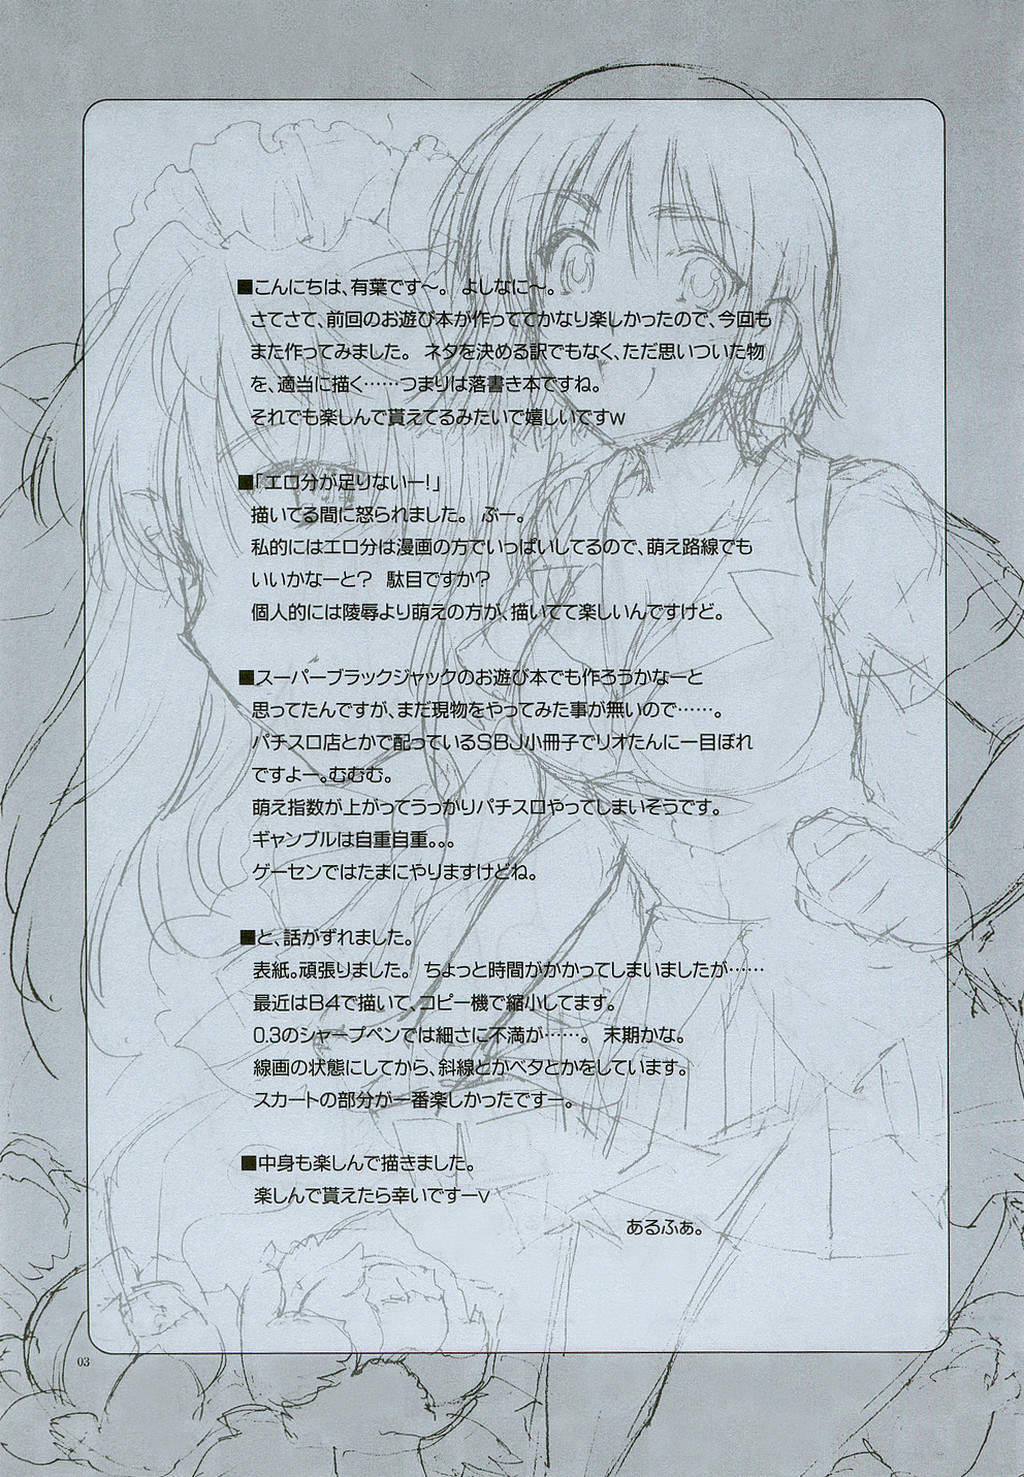 ■こんにちは、有葉です～。 よしなに～。
さてさて、前回のお遊び本が作っててかなり楽しかったので、今回も
また作ってみました。 ネタを決める訳でもなく、ただ思いついた物
を、適当に描く……つまりは落書き本ですね。
それでも楽しんで貰えてるみたいで嬉しいですw
■「エロ分が足りないー!」
描いてる間に怒られました。 ぶー。
私的にはエロ分は漫画の方でいっぱいしてるので、萌え路線でも
いいかなーと? 駄目ですか?
個人的には陵辱より萌えの方が、描いてて楽しいんですけど。
■スーパーブラックジャックのお遊び本でも作ろうかなーと
思ってたんですが、まだ現物をやってみた事が無いので……。
パチスロ店とかで配っているSBJ小冊子でリオたんに一目ぼれ
ですよー。むむむ。
萌え指数が上がってうっかりパチスロやってしまいそうです。
ギャンブルは自重自重。。。
ゲーセンではたまにやりますけどね。
■と、話がずれました。
表紙。頑張りました。 ちょっと時間がかかってしまいましたが……
最近はB4で描いて、コピー機で縮小してます。
0.3のシャープペンでは細さに不満が……。 末期かな。
線画の状態にしてから、斜線とかベタとかをしています。
スカートの部分が一番楽しかったですー。
■中身も楽しんで描きました。
楽しんで貰えたら幸いですーv
あるふぁ。
03